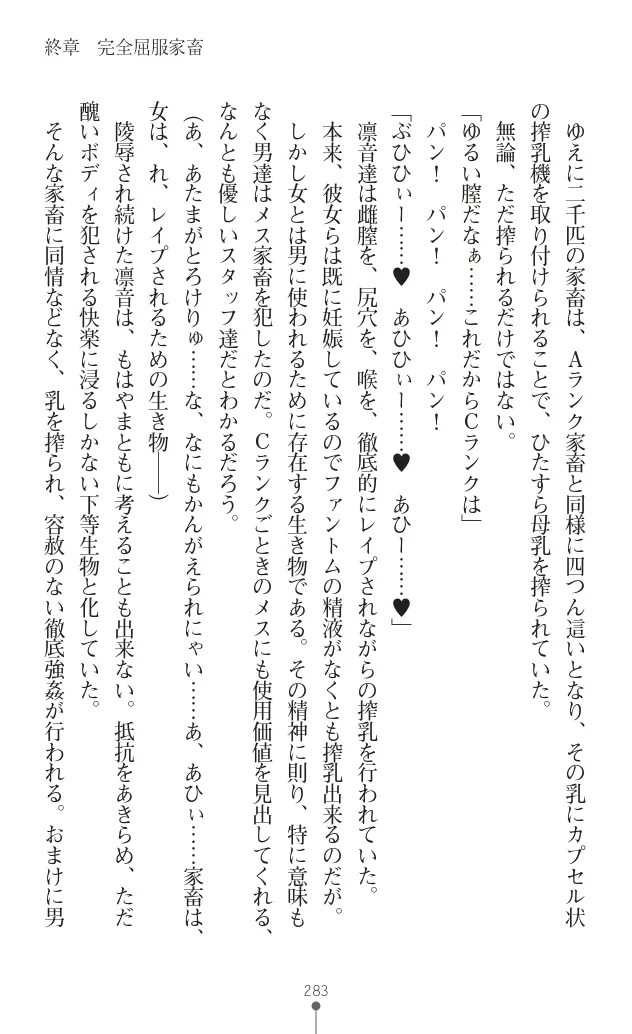 終章　完全屈服家畜
　ゆえに二千匹の家畜は、Aランク家畜と同様に四つん這いとなり、その乳にカプセル状
の搾乳機を取り付けられることで、ひたすら母乳を搾られていた。
　無論、ただ搾られるだけではない。
「ゆるい膣だなぁ……これだからCランクは」
　パン！　パン！　パン！　パン！
「ぶひひぃー……♥　あひひぃー……♥　あひー……♥」
　凛音達は雌膣を、尻穴を、喉を、徹底的にレイプされながらの搾乳を行われていた。
　本来、彼女らは既に妊娠しているのでファントムの精液がなくとも搾乳出来るのだが。
　しかし女とは男に使われるために存在する生き物である。その精神に則り、特に意味も
なく男達はメス家畜を犯したのだ。Cランクごときのメスにも使用価値を見出してくれる、
なんとも優しいスタッフ達だとわかるだろう。
（あ、あたまがとろけりゅ……な、なにもかんがえられにゃい……あ、あひぃ……家畜は、
女は、れ、レイプされるための生き物――）
　陵辱され続けた凛音は、もはやまともに考えることも出来ない。抵抗をあきらめ、ただ
醜いボディを犯される快楽に浸るしかない下等生物と化していた。
　そんな家畜に同情などなく、乳を搾られ、容赦のない徹底強姦が行われる。おまけに男
283